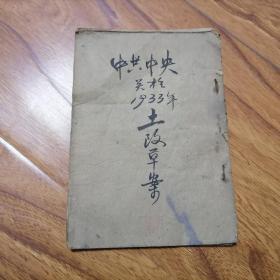 中共中央
关于
1933年
土改草案